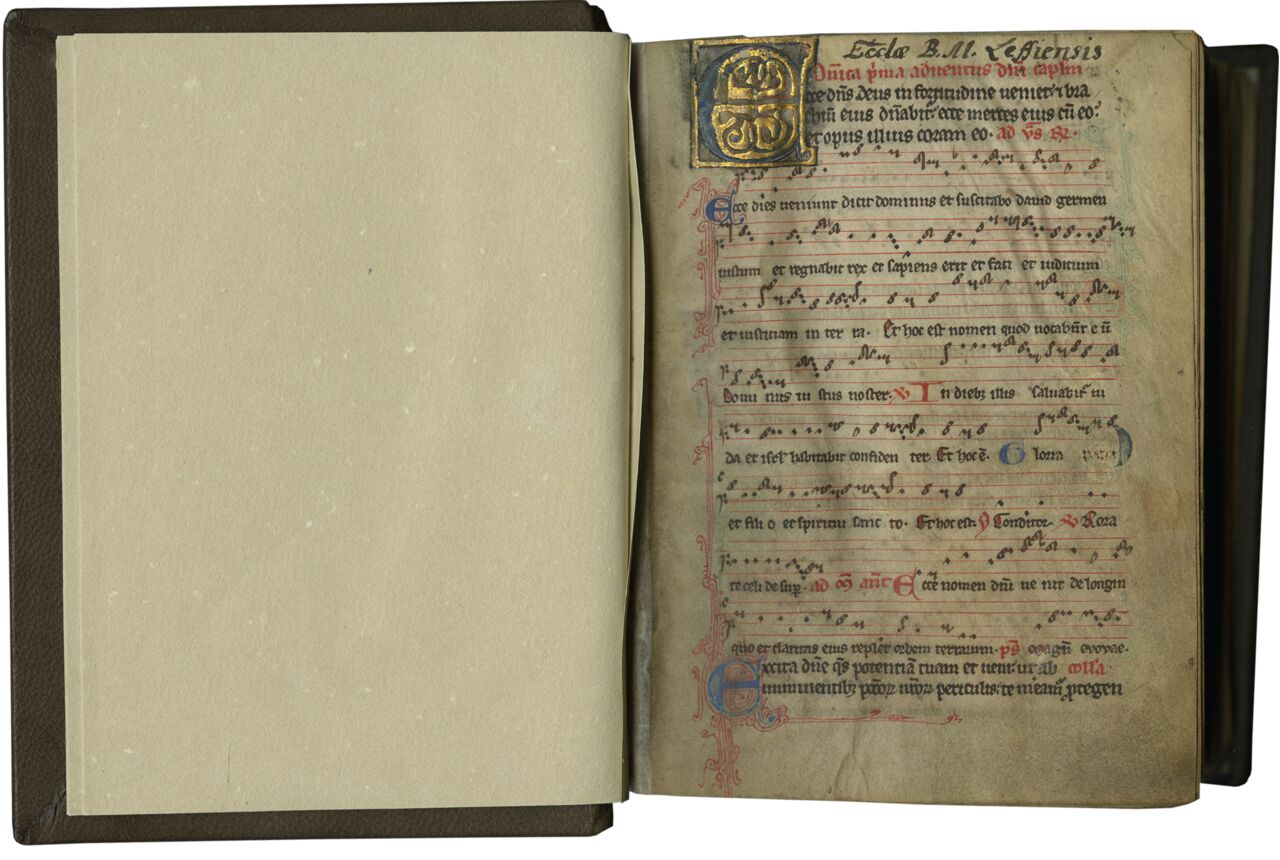 Ecclæ B.M. Leffiensis
Dn̄ica p̄ma aduentus dn̄i capl̄m
Ecce dn̄s deus in fortitudine ueniet ⁊ bra
chiū eius dn̄abit᷑ ecce merces eius cū eo
et opus illius coram eo. ad v̄s R̄.
Ecce dies ueniunt dicit dominus et suscitabo dauid germen
iustum et regnabit rex et sapiens erit et faci et iudicium
et iusticiam in ter ra. Et hoc est nomen quod uocabūt e ū
Domi nus iu stus noster. V In dieb; illis saluabit᷑ iu
da et isrl̄ habitabit confiden ter. Et hoc ē. Gloria
et fili o et spiritui sanc to. Et hoc est. ẏ Conditor. V Rora
te celi de sup̄. ad m̄ ant̄ Ecce nomen dn̄i ue nit de longin
quo et claritas eius replet orbem terrarum. p̄s magn̄ evovae.
Excita dn̄e q̄s potentiā tuam et ueni: ut ab coll̄a
imminentib; pctōꝝ nr̄oꝝ periculis: te meam᷑ ꝓtegen